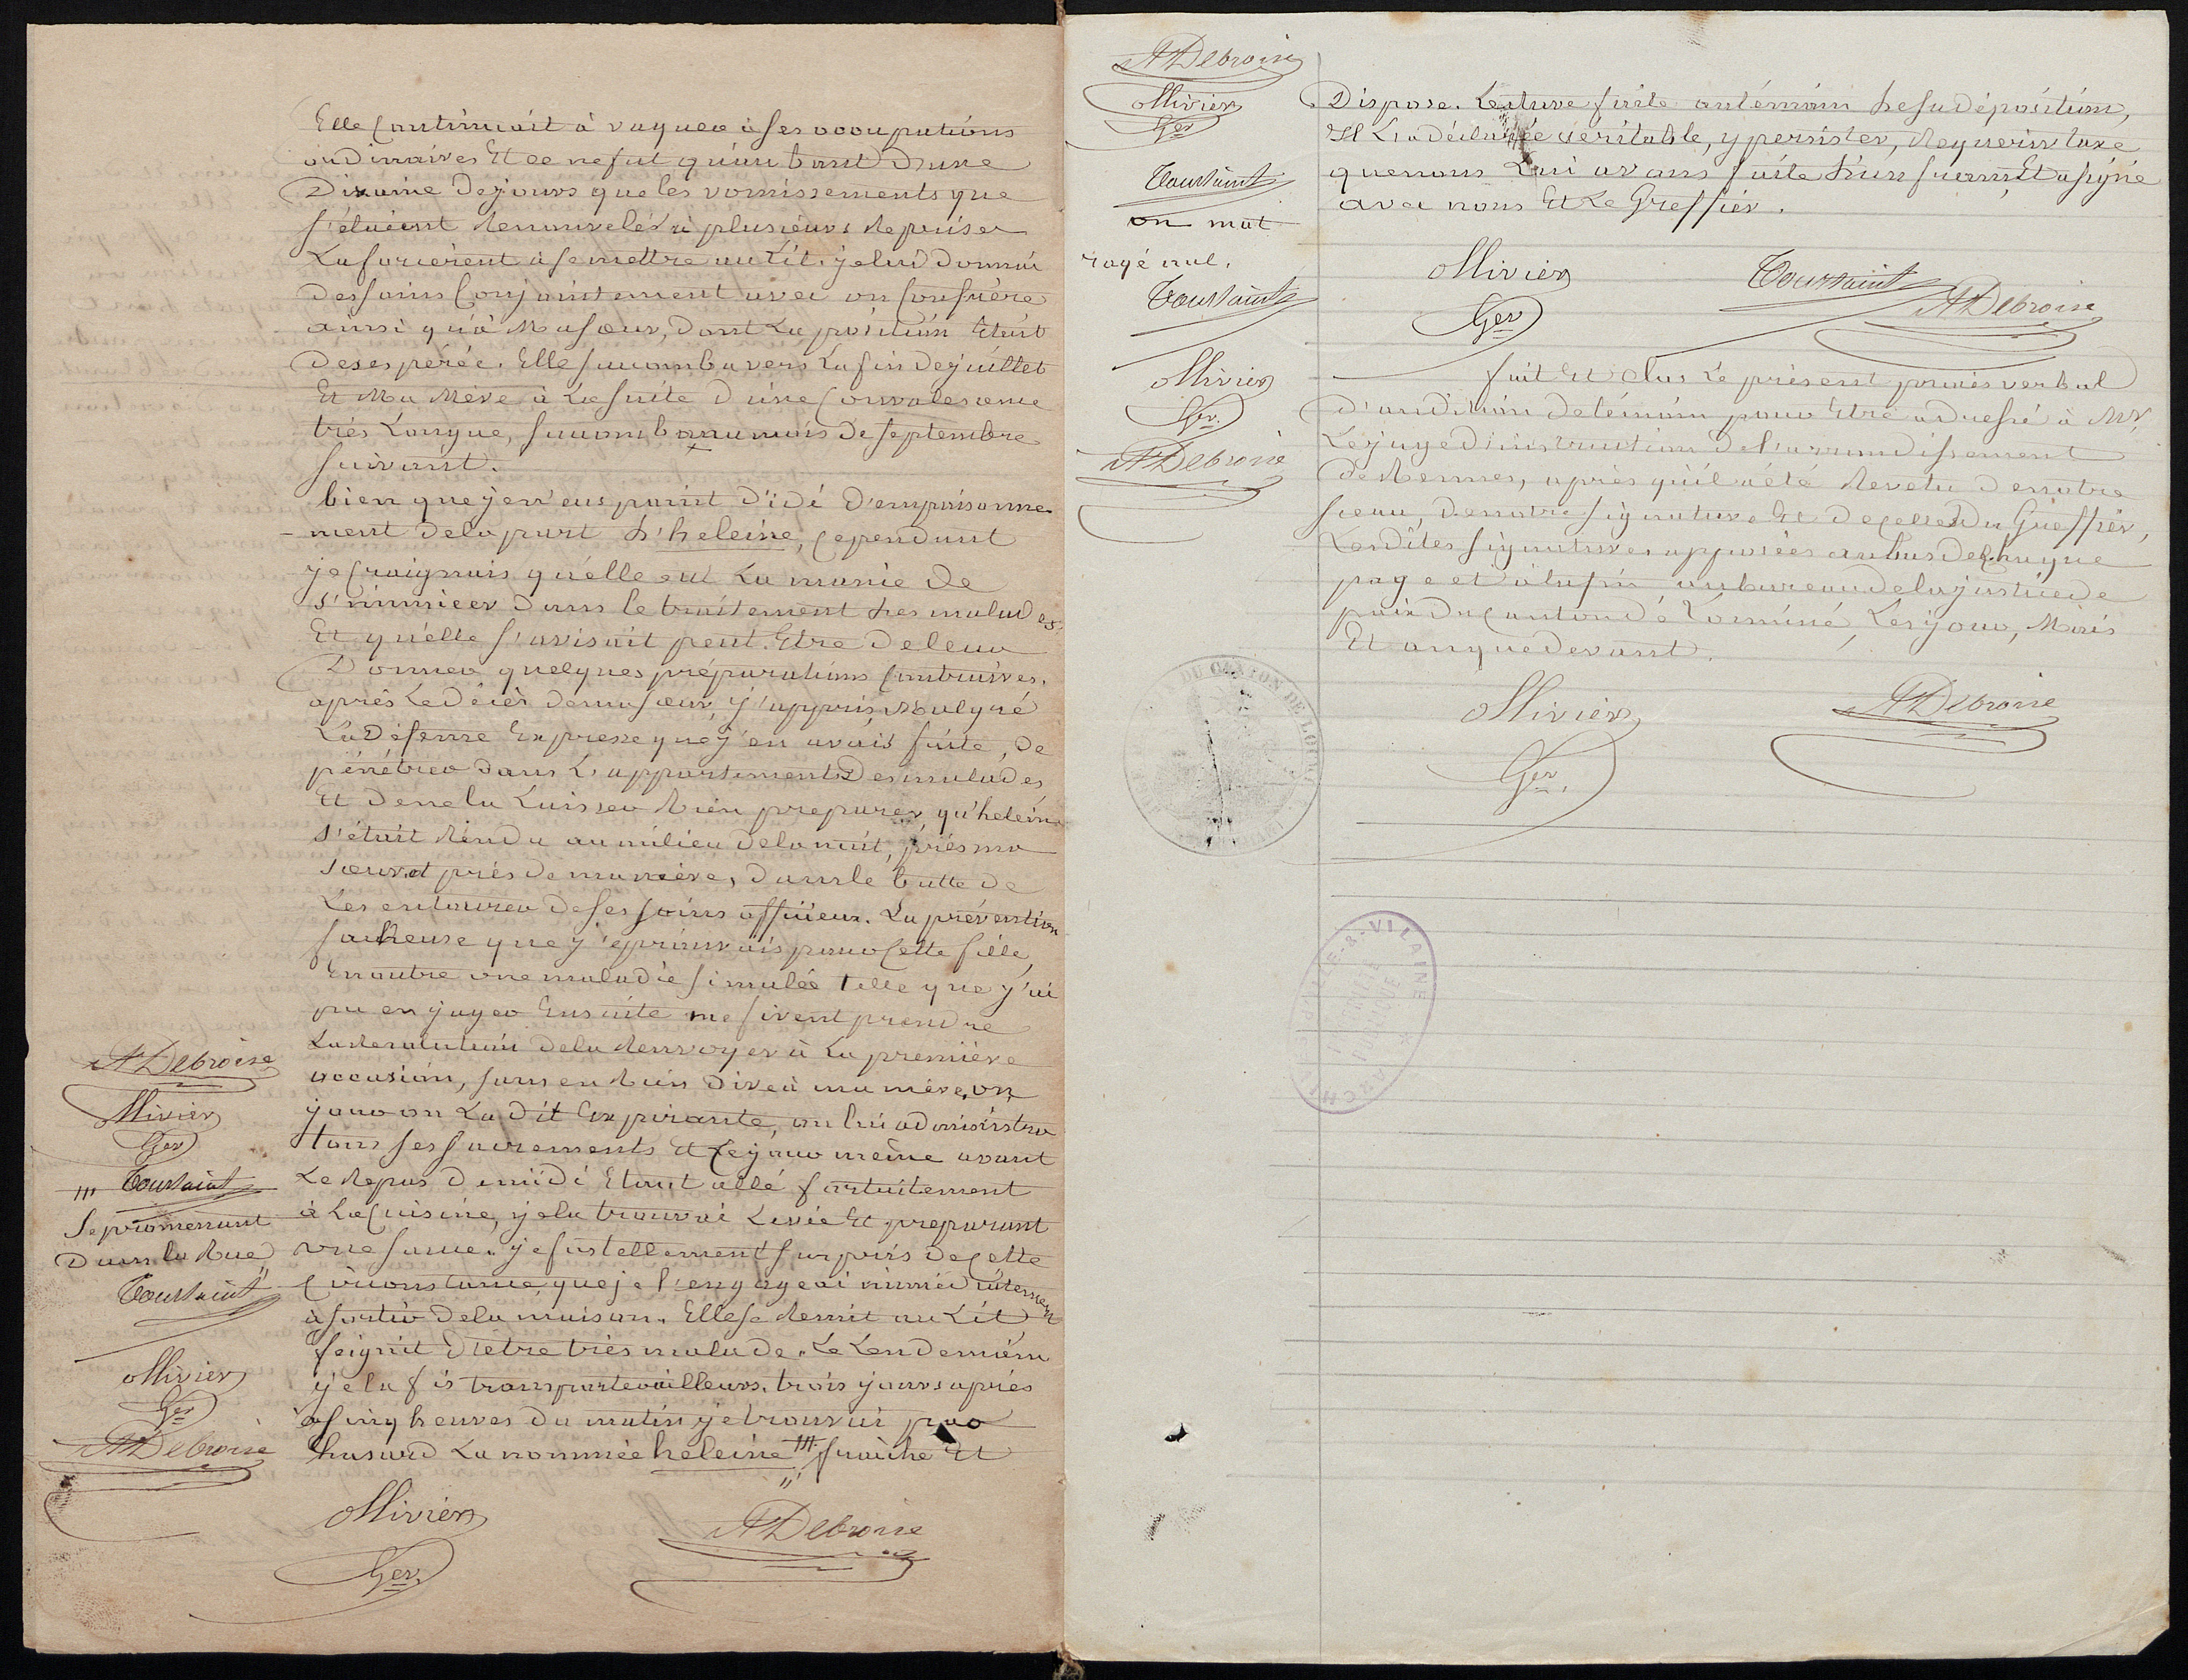 Elle Continuait à vaquer à ses occupations
ordinaires Et ce ne fut qu'au bout D'une
Dixaine De jours que les vomissements que
s'étaient Renouvelés à plusieurs Reprises
La forcèrent à se mettre au Lit. je lui Donnai
Des soins Conjointement avec un Confrère
ainsi qu'à Ma sœur, Dont La position Etait
Desespérée. Elle succomba vers La fin De juillet
Et Ma Mère à La suite D'une Convalescence
très Longue, succomba au mois De Septembre
suivant.
bien que je n'eus point D'idé D'empoisonne-
-ment De la part D'heleine, Cependant
je Craignais qu'elle eut La manie De
s'immicer Dans le traitement Des malades
Et qu'elle s'avisait peut-Etre De leur
Donner quelques préparations Contraires.
après Le Décès De ma sœur, j'appris, Malgré
La Défense Expresse que j'en avais faite, De
pénétrer Dans L'appartement Des malades
Et De ne la Laisser Rien preparer, qu'heleine
s'était Rendu au milieu De la nuit, près ma
sœur et près De ma mère, Dans le butte De
Les entourer De ses soins officieux. La prévention
facheuse que j'éprouvais pour Cette fille,
En outre une maladie simulée telle que j'ai
pu en juger Ensuite me firent prendre
La Resolution De la Renvoyer à La première
occasion, sans en Rien Dire à ma mère, un
jour on La Dit Expirante, on lui administra
tous ses sacrements Et Ce jour même avant
Le Repas De midi Etant allé fortuitement
à La Cuisine, je la trouvai Levée Et preparant
une sauce. je fus tellement surpris De Cette
Circonstance, que je l'engageai immédiatement
à sortir De la maison. Elle se Remit au Lit
feignit D'être très malade. Le Lendemain
je la fis transporter ailleurs. trois jours après
à Cinq heures Du matin je trouvai par
hasard La nommée heleine /// fraiche Et
ADebroise
Ollivier
Ger
/// Toursaint
Se promenant
Dans la Rue
Toursaint
Ollivier
Ger
ADebroise
Ollivier
Ger
ADebroise
ADebroise
Ollivier
Ger
Toursaint
un mot
rayé nul.
Toursaint
Ollivier
Ger
ADebroise
Dispose. Lecture faite au témoin De sa Déposition,
Il L'a déclarée véritable, y persister, Requerir taxe
que nous Lui avons faite D'un franc Et a signé
avec nous Et Le Greffier.
Ollivier Toursaint
Ger ADebroise
fait Et Clos Le présent procès verbal
D'audition De témoin pour Etre adressé à Mr
Le juge D'instruction De l'arrondissement
De Rennes, après qu'il a été Revetu De notre
sceau, De notre signature Et De Celle Du Greffier,
Les Dites signatures apposées au bas De Chaque
page et à la fin au bureau De la justice De
paix Du Canton De Locminé, Les jour, Mois
Et an que Devant.
Ollivier ADebroise
Ger
DU CANTON DE LOC
ILLE-&-VILAINE
ARCHIVES